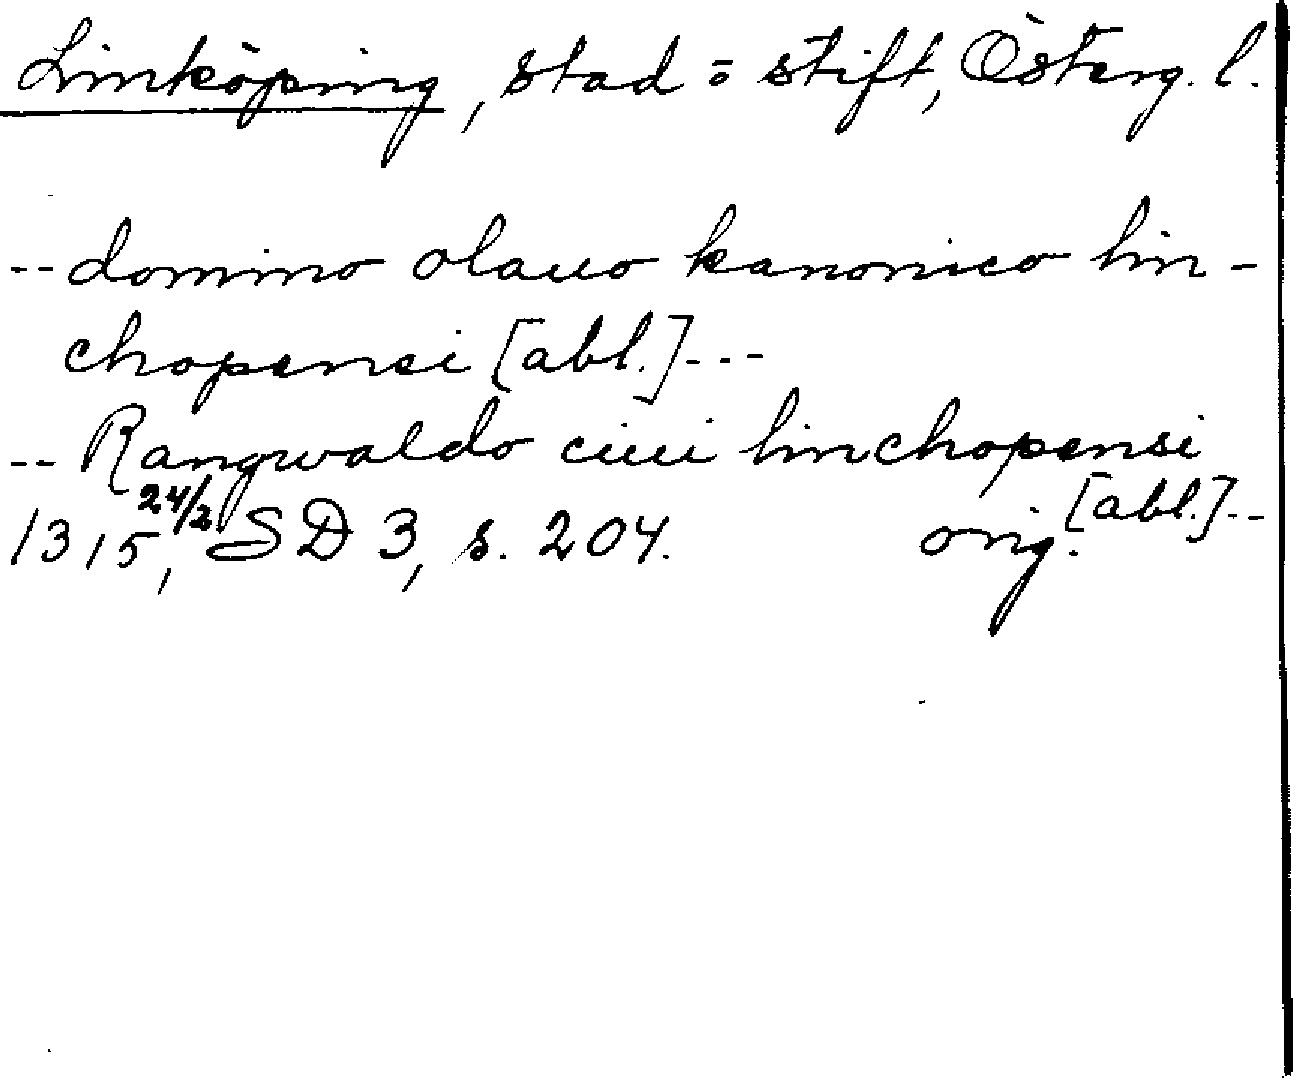 Linköping, stad o stift, Österg. l.
-- domino olauo kanonico lin-
chopensi [abl.]---
-- Rangwaldo ciui linchopensi
[abl.]--
1315 24/2, SD 3, s. 204. orig.